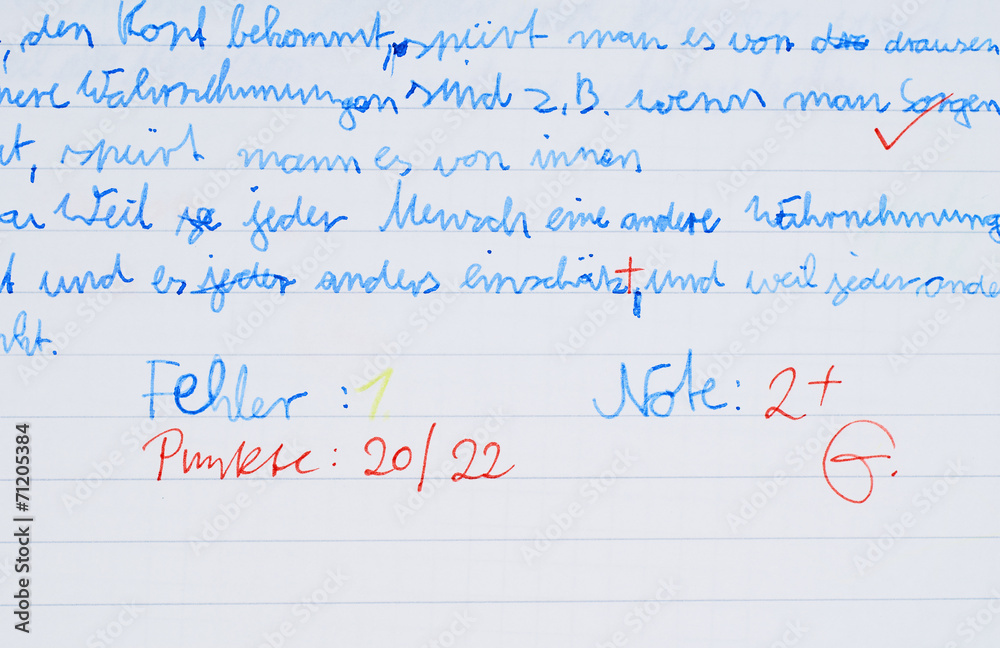 , den Kopf bekommt, spürt man es von drausen
nere Wahrnehmungen sind z.B. wenn man Sorgen
t, spürt mann es von innen
Weil jeder Mensch eine andere Wahrnehmung
t und es jeder anders einschätzt, und weil jeder ande
nkt.
Fehler : 1 Note: 2+
Punkte: 20/22
Adobe Stock | #71205384